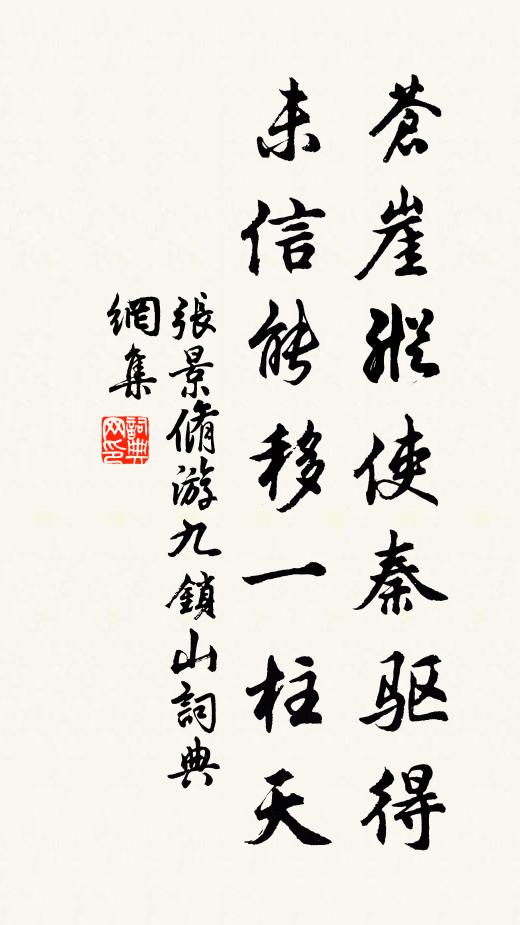 蒼崖縱使秦驱得
未信能移一柱天
張景脩游九鎖山詞典
網集
詞典網印